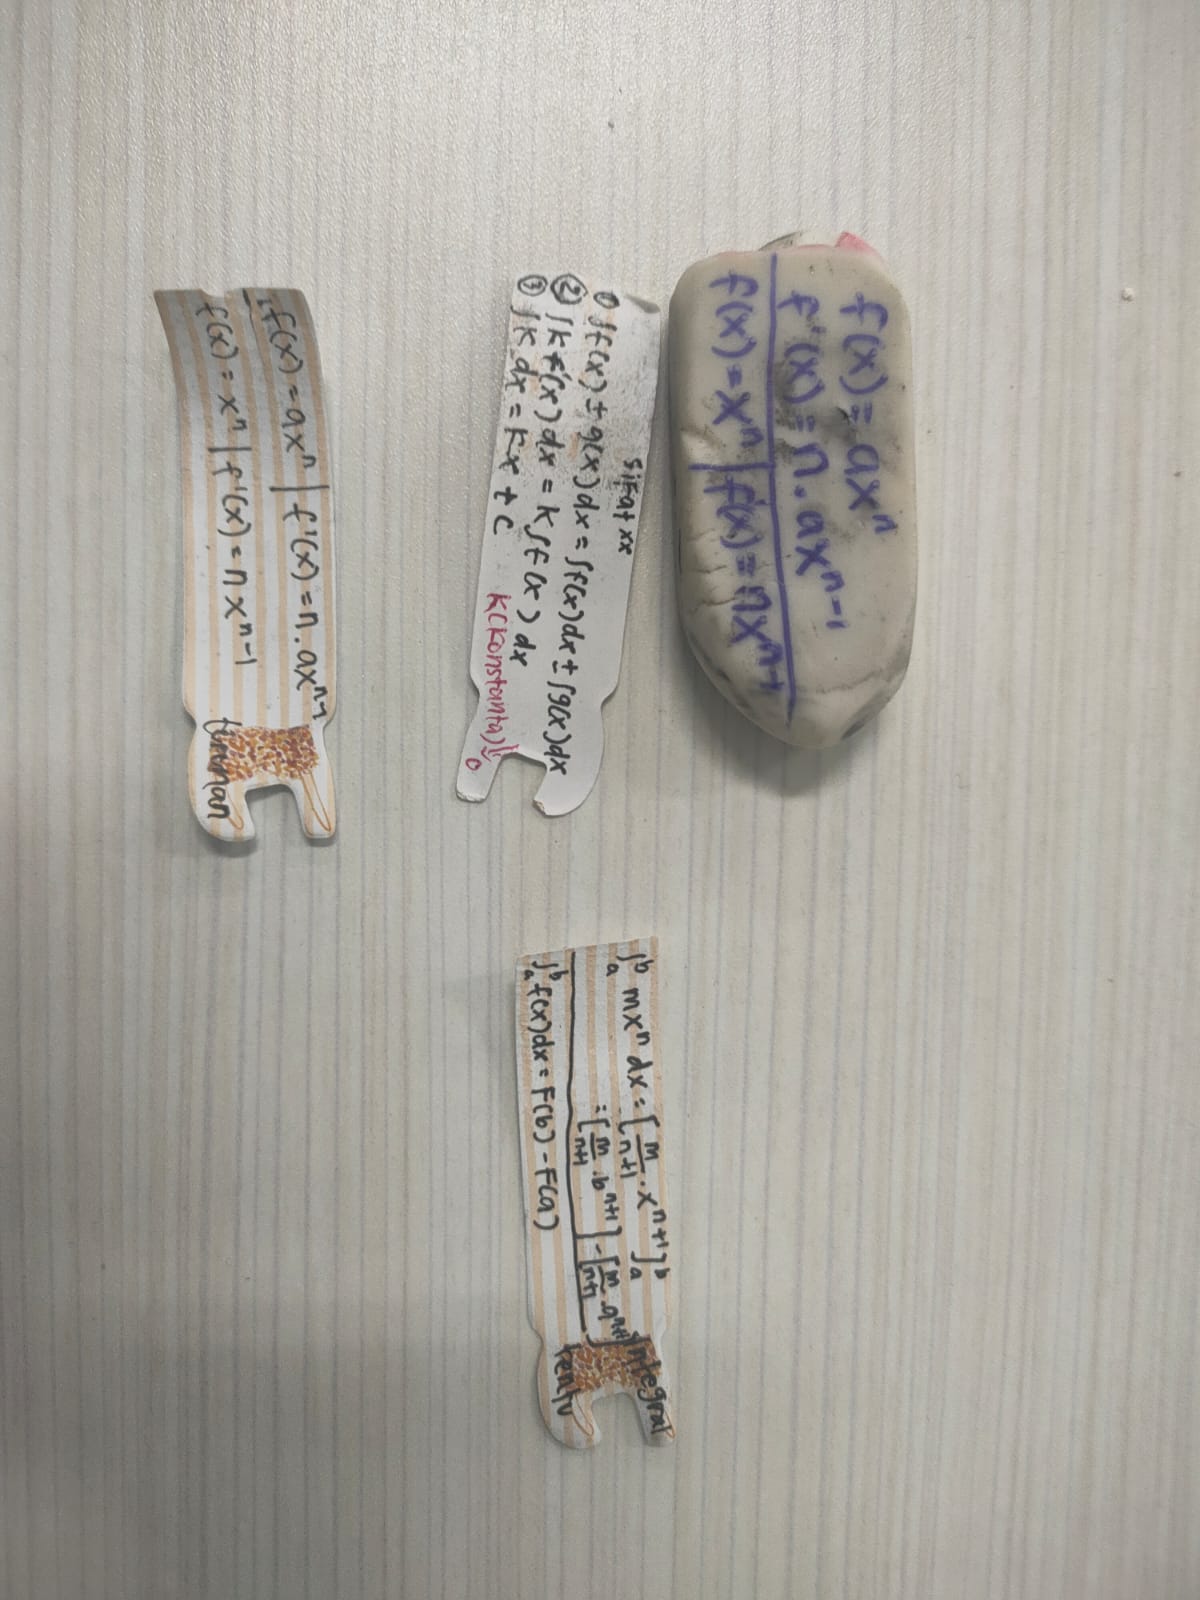 f(x) = ax^n
f'(x) = n . ax^n-1
f(x) = x^n | f'(x) = nx^n-1
sifat xx
① ∫f(x) ± g(x)dx = ∫f(x)dx ± ∫g(x)dx
② ∫k f(x) dx = k ∫f(x) dx
③ ∫k dx = kx + c
k(konstanta)
f(x) = ax^n | f'(x) = n . ax^n-1
f(x) = x^n | f'(x) = nx^n-1
turunan
∫_a^b mx^n dx = [m/n+1 . x^n+1]_a^b
= [m/n+1 . b^n+1] - [m/n+1 . a^n+1]
∫_a^b f(x)dx = F(b) - F(a)
Integral
tentu